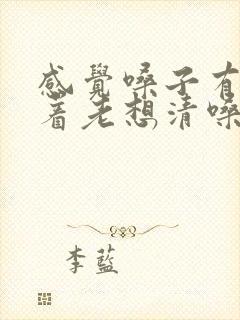 感覺嗓子有
着老想清嗓
李藍